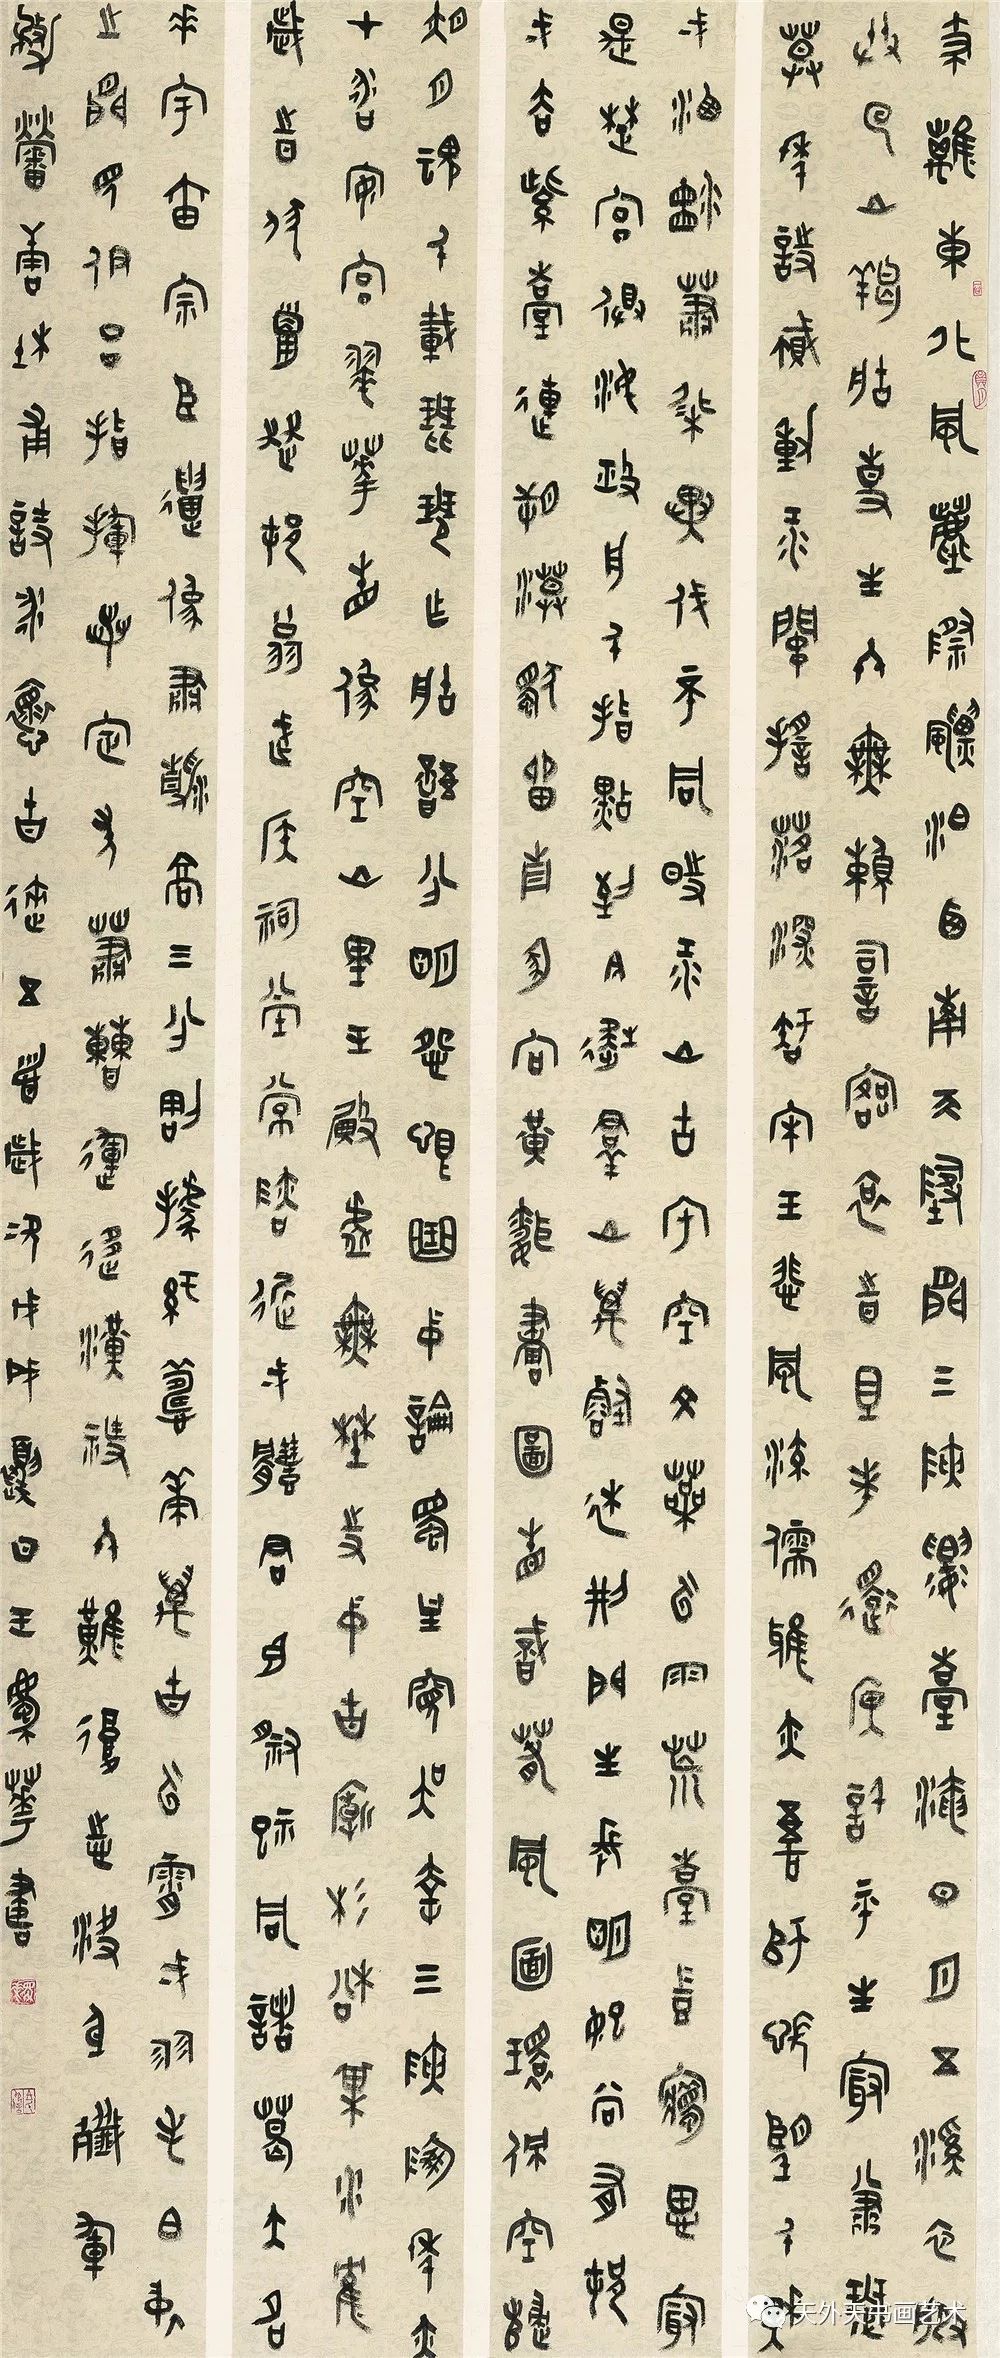 支離東北風塵際飄泊西南天地間三峽樓臺淹日月五溪衣服
共雲山羯胡事主終無賴詞客哀時且未還庾信平生最蕭瑟
暮年詩賦動江關搖落深知宋玉悲風流儒雅亦吾師悵望千秋
一灑淚蕭條異代不同時江山故宅空文藻雲雨荒臺豈夢思最
是楚宮俱泯滅舟人指點到今疑群山萬壑赴荊門生長明妃尚有村
一去紫臺連朔漠獨留青冢向黃昏畫圖省識春風面環珮空歸
夜月魂千載琵琶作胡語分明怨恨曲中論蜀主窺吳幸三峽崩年亦
在永安宮翠華想像空山裏玉殿虛無野寺中古廟杉松巢水鶴
歲時伏臘走村翁武侯祠堂常鄰近一體君臣祭祀同諸葛大名
垂宇宙宗臣遺像肅清高三分割據紆籌策萬古雲霄一羽毛伯仲
之間見伊呂指揮若定失蕭曹運移漢祚終難復志決身殲軍
務勞唐杜甫詩詠懷古跡五首歲次戊戌夏日王華書
天外天书画艺术